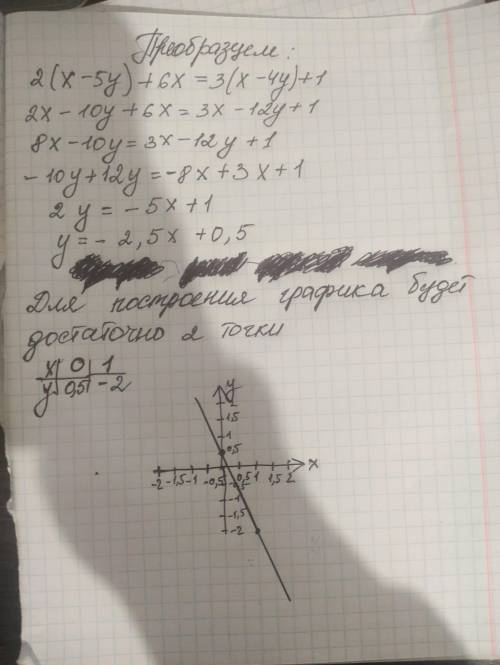 Преобразуем:
2(x-5y)+6x=3(x-4y)+1
2x-10y+6x=3x-12y+1
8x-10y=3x-12y+1
-10y+12y=-8x+3x+1
2y=-5x+1
y=-2,5x+0,5
Для построения графика будет
достаточно 2 точки
x | 0 | 1
y | 0,5 | -2
y
2
1,5
1
0,5
-2 -1,5 -1 -0,5 0,5 1 1,5 2 x
-0,5
-1
-1,5
-2